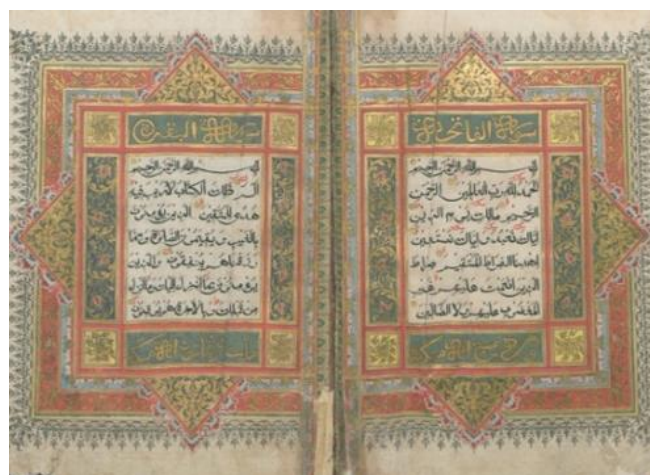 سورة الفاتحة
بسم الله الرحمن الرحيم
الحمد لله رب العالمين الرحمن
الرحيم مالك يوم الدين
اياك نعبد و اياك نستعين
اهدنا الصراط المستقيم صراط
الذين انعمت عليهم غير
المغضوب عليهم ولا الضالين
سورة البقرة
بسم الله الرحمن الرحيم
الم ذلك الكتاب لا ريب فيه
هدى للمتقين الذين يؤمنون
بالغيب و يقيمون الصلوة و مما
رزقناهم ينفقون والذين
يؤمنون بما انزل اليك وما انزل
من قبلك و بالاخرة هم يوقنون